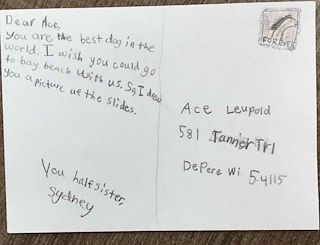 Dear Ace,
You are the best dog in the
world. I wish you could go
to bay beach with us. So I drew
you a picture of the slides.
You half sister,
Sydney
FOREVER
Ace Leupold
581 Tanner Trl
DePere Wi. 54115